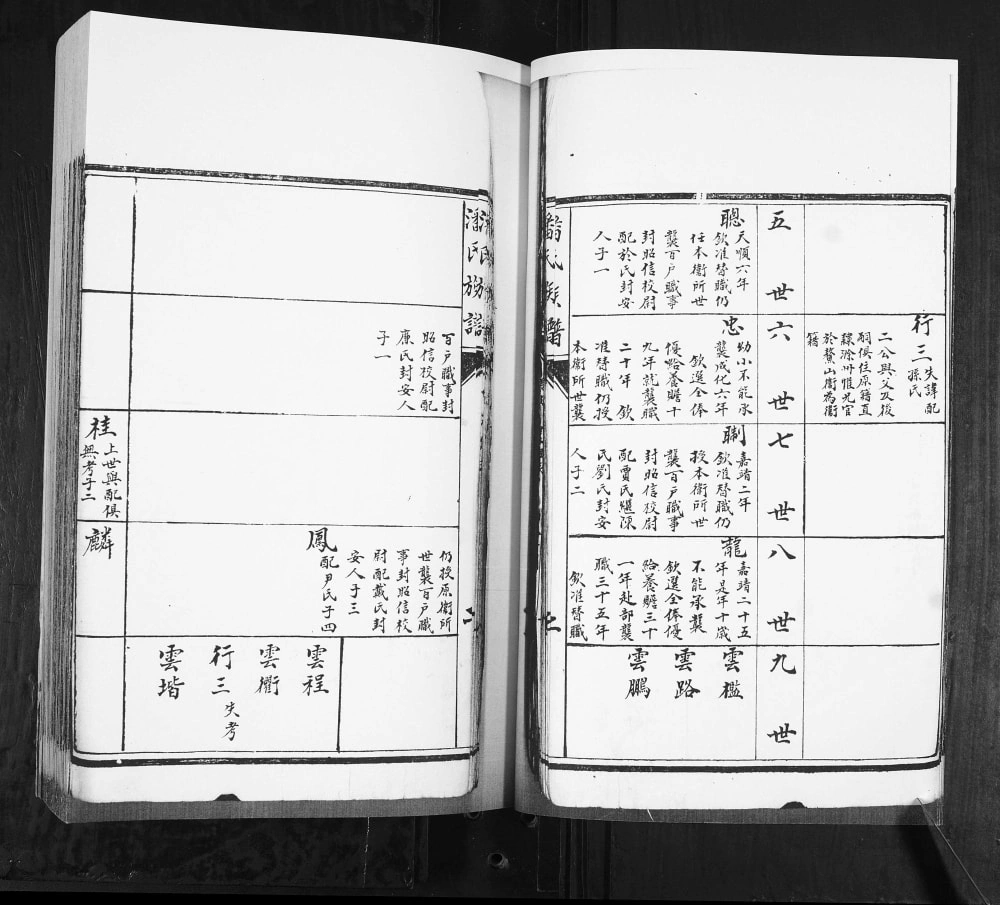 行三
失諱配
孫氏
二公與父及後
嗣俱住原籍直
隸滁州惟允官
於鰲山衛為衛
籍
五世
六世
七世
八世
九世
聰
天順六年
欽准替職仍
任本衛所世
襲百户職事
封昭信校尉
配於氏封安
人子一
忠
幼小不能承
襲成化六年
欽選全俸
優給養贍十
九年就襲職
二十年 欽
准替職仍授
本衛所世襲
嘉靖二年
欽准替職仍
授本衛所世
襲百户職事
封昭信校尉
配賈氏繼陳
氏劉氏封安
人子二
龍
嘉靖二十五
年是年十歲
不能承襲
欽選全俸優
給養贍三十
一年赴部襲
職三十五年
欽准替職
雲檻
雲路
雲鵬
潘氏族譜
七
潘氏族譜
百户職事封
昭信校尉配
廉氏封安人
子一
仍授原衛所
世襲百户職
事封昭信校
尉配戴氏封
安人子三
鳳
配尹氏子四
雲程
雲衢
行三
失考
雲堦
桂
上世與配俱
無考子二
麟